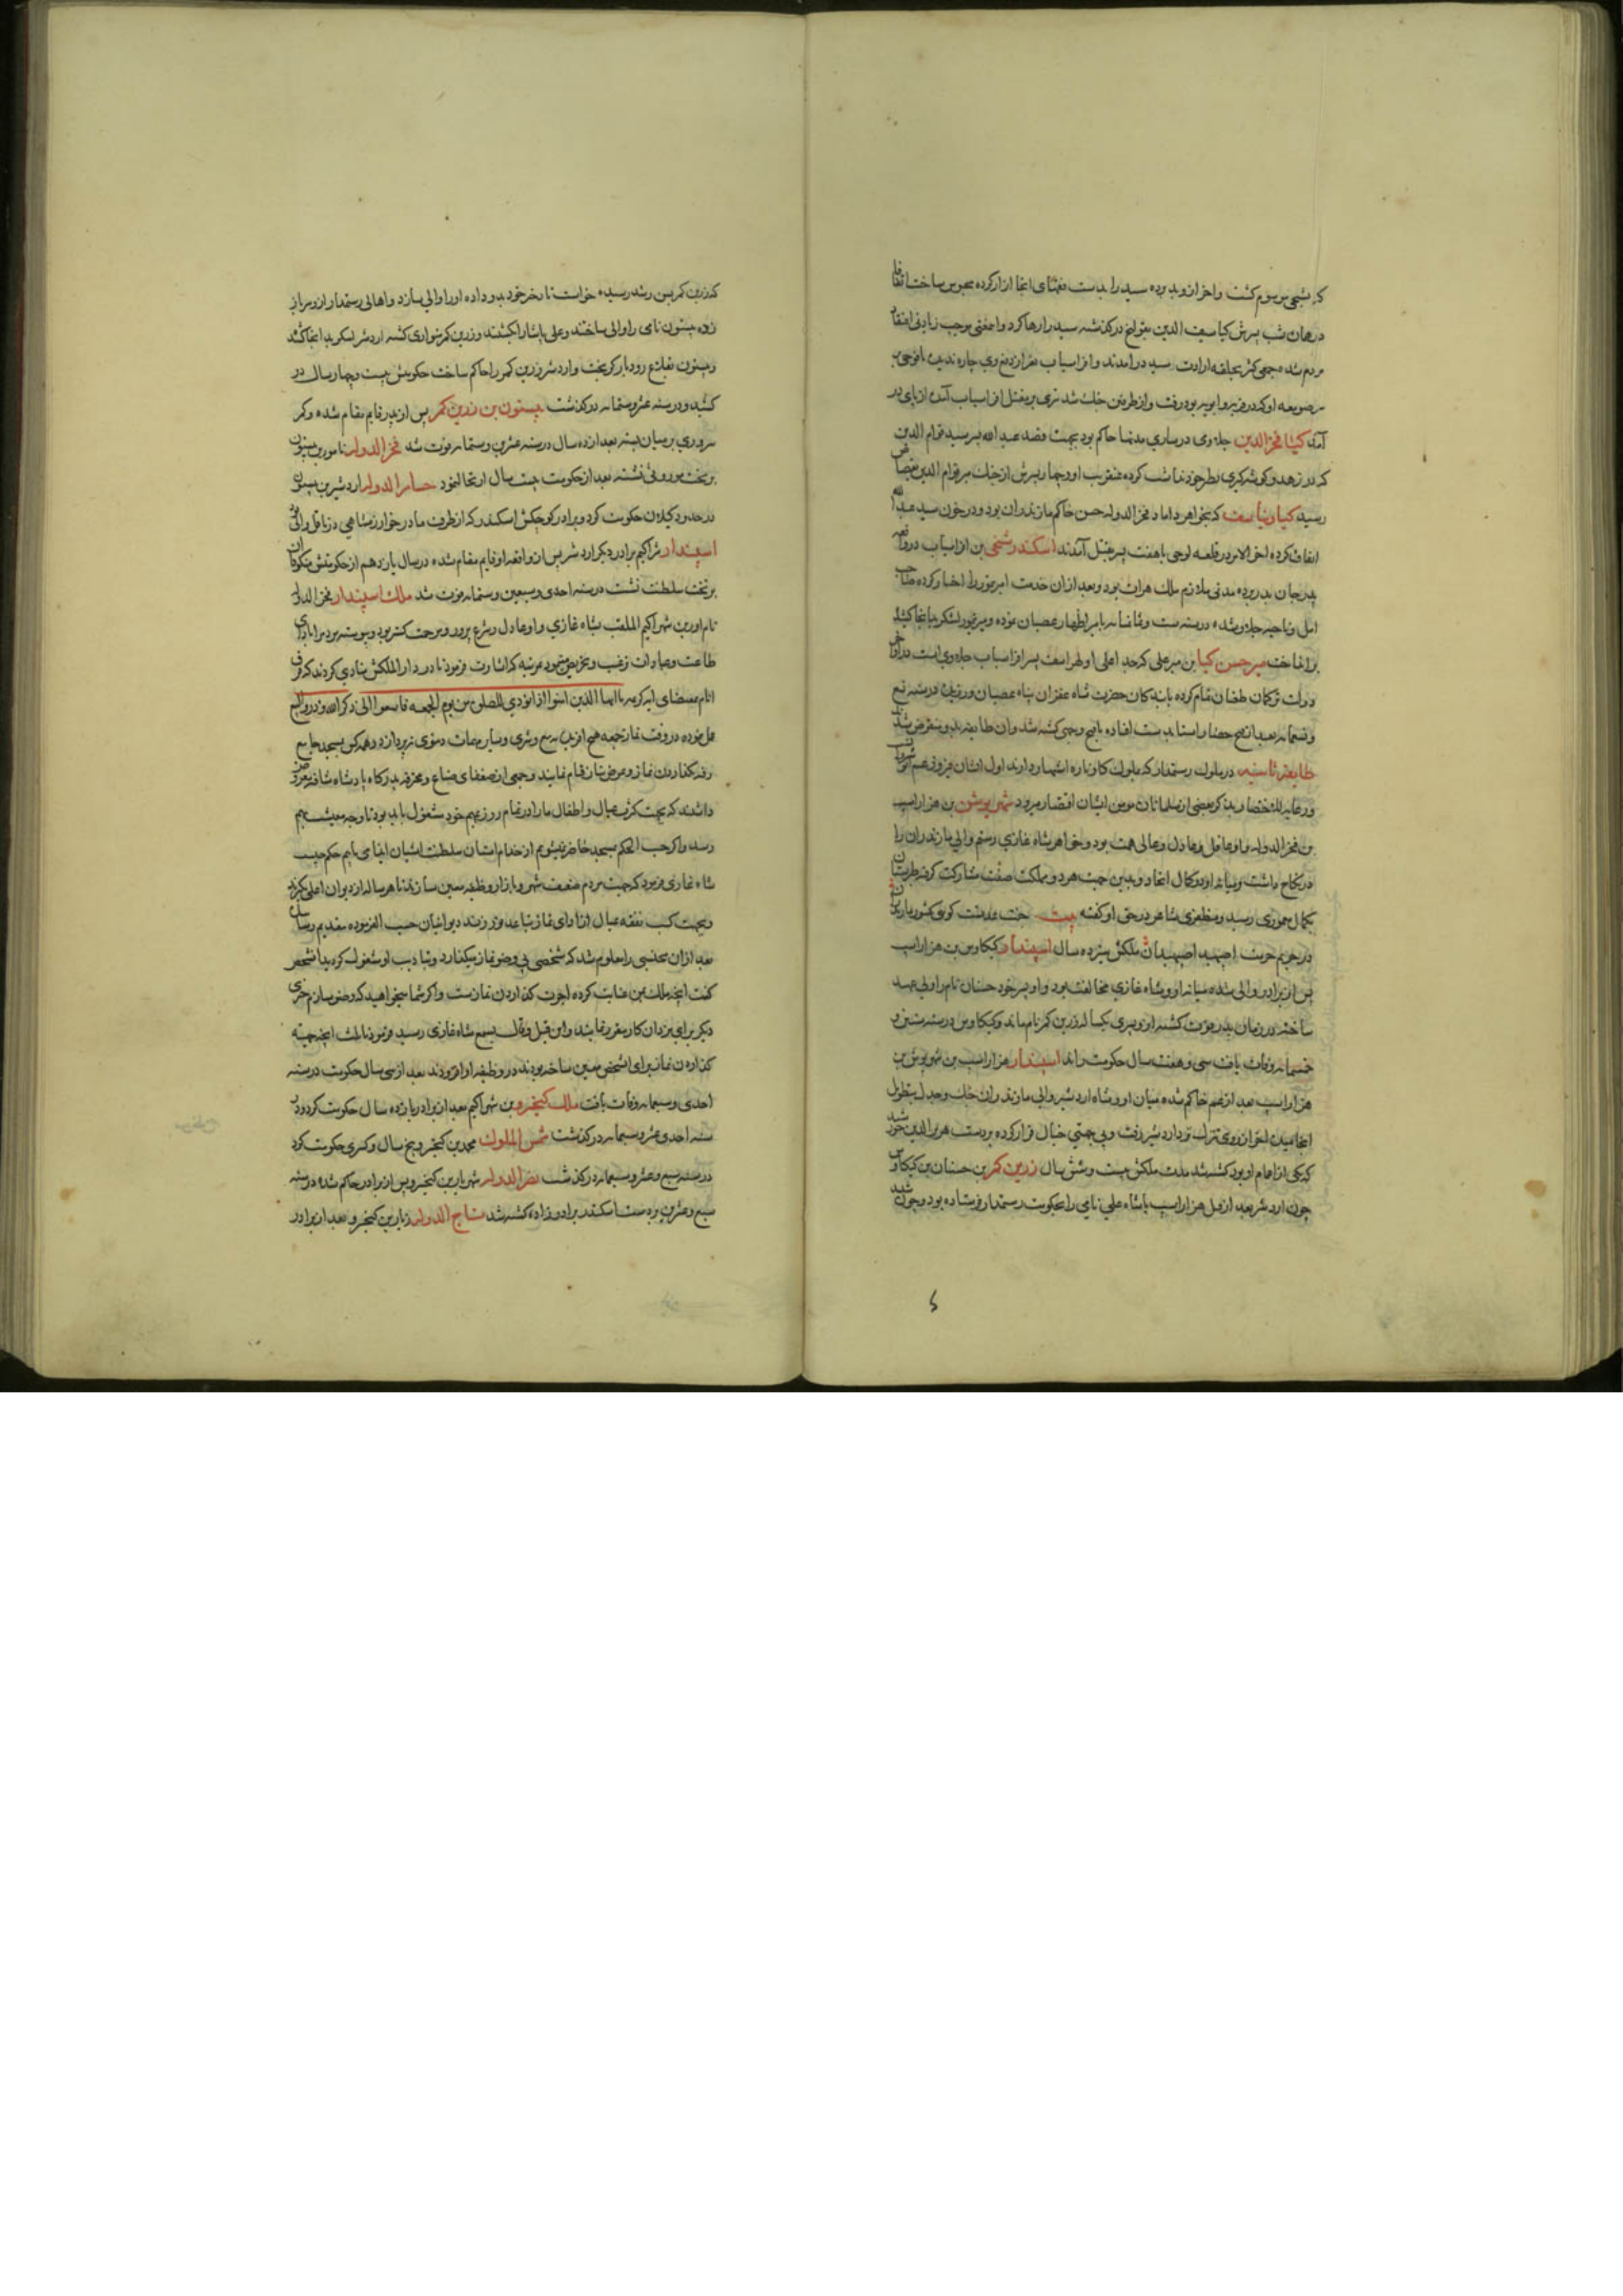 که شیخی مرسوم گشت واخر ازو بد برده سید را بدست فقهای انجا ازار کرده محبوس ساخت اتفاقا
در همان شب پسرش کیا سیف الدین بقولنج در گذشته سید را رها کرد و اینمعنی موجب زیادتی اعتقاد
مردم شده جمعی کثیر بحلقه ارادت سید در امدند و افراسیاب مضر از دفع وی چاره ندید با فوجی بر
سر صومعه او که در قریه وابویه بود رفت و از طرفین جنک شد تیری بر مقتل افراسیاب آمده از پای در
آمد کیا فخر الدین جلاوی در ساری مدتها حاکم بود بجهت قصد عبد الله پسر سید قوام الدین
که در زهد و گوشه گیری بطرح خود شناب کرده عنقریب او و چهار پسرش از جنک میر قوام الدین بقصاص
رسید کیا وشتاسف که بخواهر داماد فخر الدوله حسن حاکم مازندران بود و در خون سید عبد الله
اتفاق کرده اخر الامر در قلعه لوجی با هفت پسر بقتل آمدند اسکندر شیخی بن افراسیاب در واقعه
پدر جان بدر برده مدتی ملازم ملک هراة بود و بعد ازان خدمت امیر تیمور را اختیار کرده صاحب
امل و ناحیه جلاو شده در سنه ست و ثمانمایه بامیر اظهار عصیان نموده و میر تیمور لشکر بدانجا کشید
برانداخت میر حسن کیا بن میر علی که جد اعلی او لهراسف پسر افراسیاب جلاوی است در اواخر
دولت ترکمان طغیان تمام کرده بابندگان حضرت شاه غفران پناه عصیان ورزید در سنه تسع
و تسعمایه بعد از فتح حصار استا بدست افتاده باقبح وجهی کشته شد و ان طایفه بدو منقرض شد
طایفه ثانیه در ملوک رستمدار که بملوک گاوباره اشتهار دارند اول ایشان فیروز عم انوشروان
و رعایة للاختصار بذکر بعضی از مسلمانان مومن ایشان اقتصار میرود شهریوشن بن هزاراسپ
بن فخر الدوله و او عاقل و عادل و عالی همت بود و خواهر شاه غازی رستم والی مازندران را
در نکاح داشت و میانه او و او کمال اتحاد و بدین جهت هر دو مملکت صفت مشارکت گرفته طبرستان
بکمال معموری رسید و مظفری شاعر در حق او گفته بیت جنت عدنست گوئی کشور مازندران
در حریم حرمت اصپهبد اصپهبدان ملکش سیزده سال اسپندار کیکاوس بن هزاراسپ
پس از برادر والی شده میانه او و شاه غازی مخالفت بود و او پسر خود حسنان نام را ولی عهد
ساخته در زمان پدر فوت گشته ازو پسری یکساله زرین کمر نام ماند و کیکاوس در سنه ستین و
خمسمایه وفات یافت سی و هفت سال حکومت راند اسپندار هزاراسپ بن شهریوش بن
هزاراسپ بعد از عم حاکم شده میان او و شاه اردشیر والی مازندران جنک و جدل بتطویل
انجامیده اخر از روی نزد اردشیر رفت و بی جهتی خیال فرار کرده بر دست هزبر الدین خورشید
که یکی از امرا او بود کشته شد مدت ملکش بیست و شش سال زرین کمر بن حسنان بن کیکاوس
چون اردشیر بعد از قتل هزاراسپ پادشاه علی نامی را بحکومت رستمدار فرستاده بود و چون شنید
که زرین کمر بسن رشد رسیده خواست تا دختر خود بدو داده او را والی سازد و اهالی رستمدار ازو سر باز
زده بیستون نامی را والی ساختند و علی پاشا را بکشتند و زرین کمر متواری گشته اردشیر لشکر بدانجا کشید
و بیستون بقلاع رودبار گریخت و اردشیر زرین کمر را حاکم ساخت حکومتش بیست و چهار سال در
کشید و در سنه عشر و ستمایه درگذشت بیستون بن زرین کمر پس از پدر قایم مقام شده و کمر
سروری بر میان بسته بعد از ده سال در سنه عشرین و ستمایه فوت شد فخر الدوله نامور بن بیستون
بر تخت موروثی نشسته بعد از حکومت بیست سال ارتحال نمود حسام الدوله اردشیر بن بیستون
در حدود کیلان حکومت کرد و برادر کوچکش اسکندر که از طرف مادر خوارزمشاهی در ناتل والی بود
اسپندار شراکیم برادر دیگر اردشیر پس از واقعه او قایم مقام شده در سال یازدهم از حکومتش منکوقاان
بر تخت سلطنت نشست در سنه احدی و سبعین و ستمایه فوت شد ملک اسپندار فخر الدوله
نام اور بن شهراکیم الملقب بشاه غازی و او عادل و شرع پرور و مرحمت گستر بود و پیوسته مردم را بادای
طاعت و عبادات ترغیب و تحریص مینمود بمرتبه که اشارت فرمود تا در دار الملکش منادی کردند که فرق
انام بمقتضای ایه کریمه یا ایها الذین امنوا اذا نودی للصلوة من یوم الجمعه فاسعوا الی ذکر الله و ذروا البیع
عمل نموده در وقت نماز جمعه هیچ افریده به بیع و شری و سایر مهمات دنیوی نپردازد و همه کس بمسجد جامع
رفته بگذاردن نماز و عرض نیاز قیام نمایند و جمعی از ضعفای صناع و محترفه بدرگاه پادشاه شتافته معروض
داشتند که بجهت کثرت عیال و اطفال ما را در تمام روز بمهم خود مشغول باید بود تا وجه معیشت بهم
رسد و اگر حسب الحکم بمسجد حاضر نشویم از خدام استان سلطنت اشیان ایذا می یابیم حکم چیست
شاه غازی فرمود که جهت مردم ضعیف شهر و بازار وظیفه معین سازند تا هر ساله از دیوان اعلی بگیرند
و بجهت کسب نفقه عیال از ادای نماز تباعد نورزند دیوانیان حسب الفرموده بتقدیم رسانیدند
بعد ازان محتسبی را معلوم شد که شخصی بی وضو نماز میگذارد و بتادیب او مشغول گردید انشخص
گفت انچه ملک بمن عنایت کرده اجرت گذاردن نمازست و اگر شما میخواهید که وضو سازم چیزی
دیگر برای برد ان کار مقرر نمایند و این قیل و قال بسمع شاه غازی رسید و فرمود تا بملث انچه جهة
گذاردن نماز برای انشخص معین ساخته بودند در وظیفه او افزودند بعد از سی سال حکومت در سنه
احدی و سبعمایه وفات یافت ملک کیخسرو بن شهراکیم بعد از برادر یازده سال حکومت کرد و در
سنه احدی عشر و سبعمایه درگذشت شمس الملوک محمد بن کیخسرو پنج سال و کسری حکومت کرد
در سنه سبع و عشر و سبعمایه درگذشت نصر الدوله شهریار بن کیخسرو پس از برادر حاکم شده در سنه
سبع و عشرین بدست اسکندر برادرزاده کشته شد تاج الدوله زیار بن کیخسرو بعد از برادر